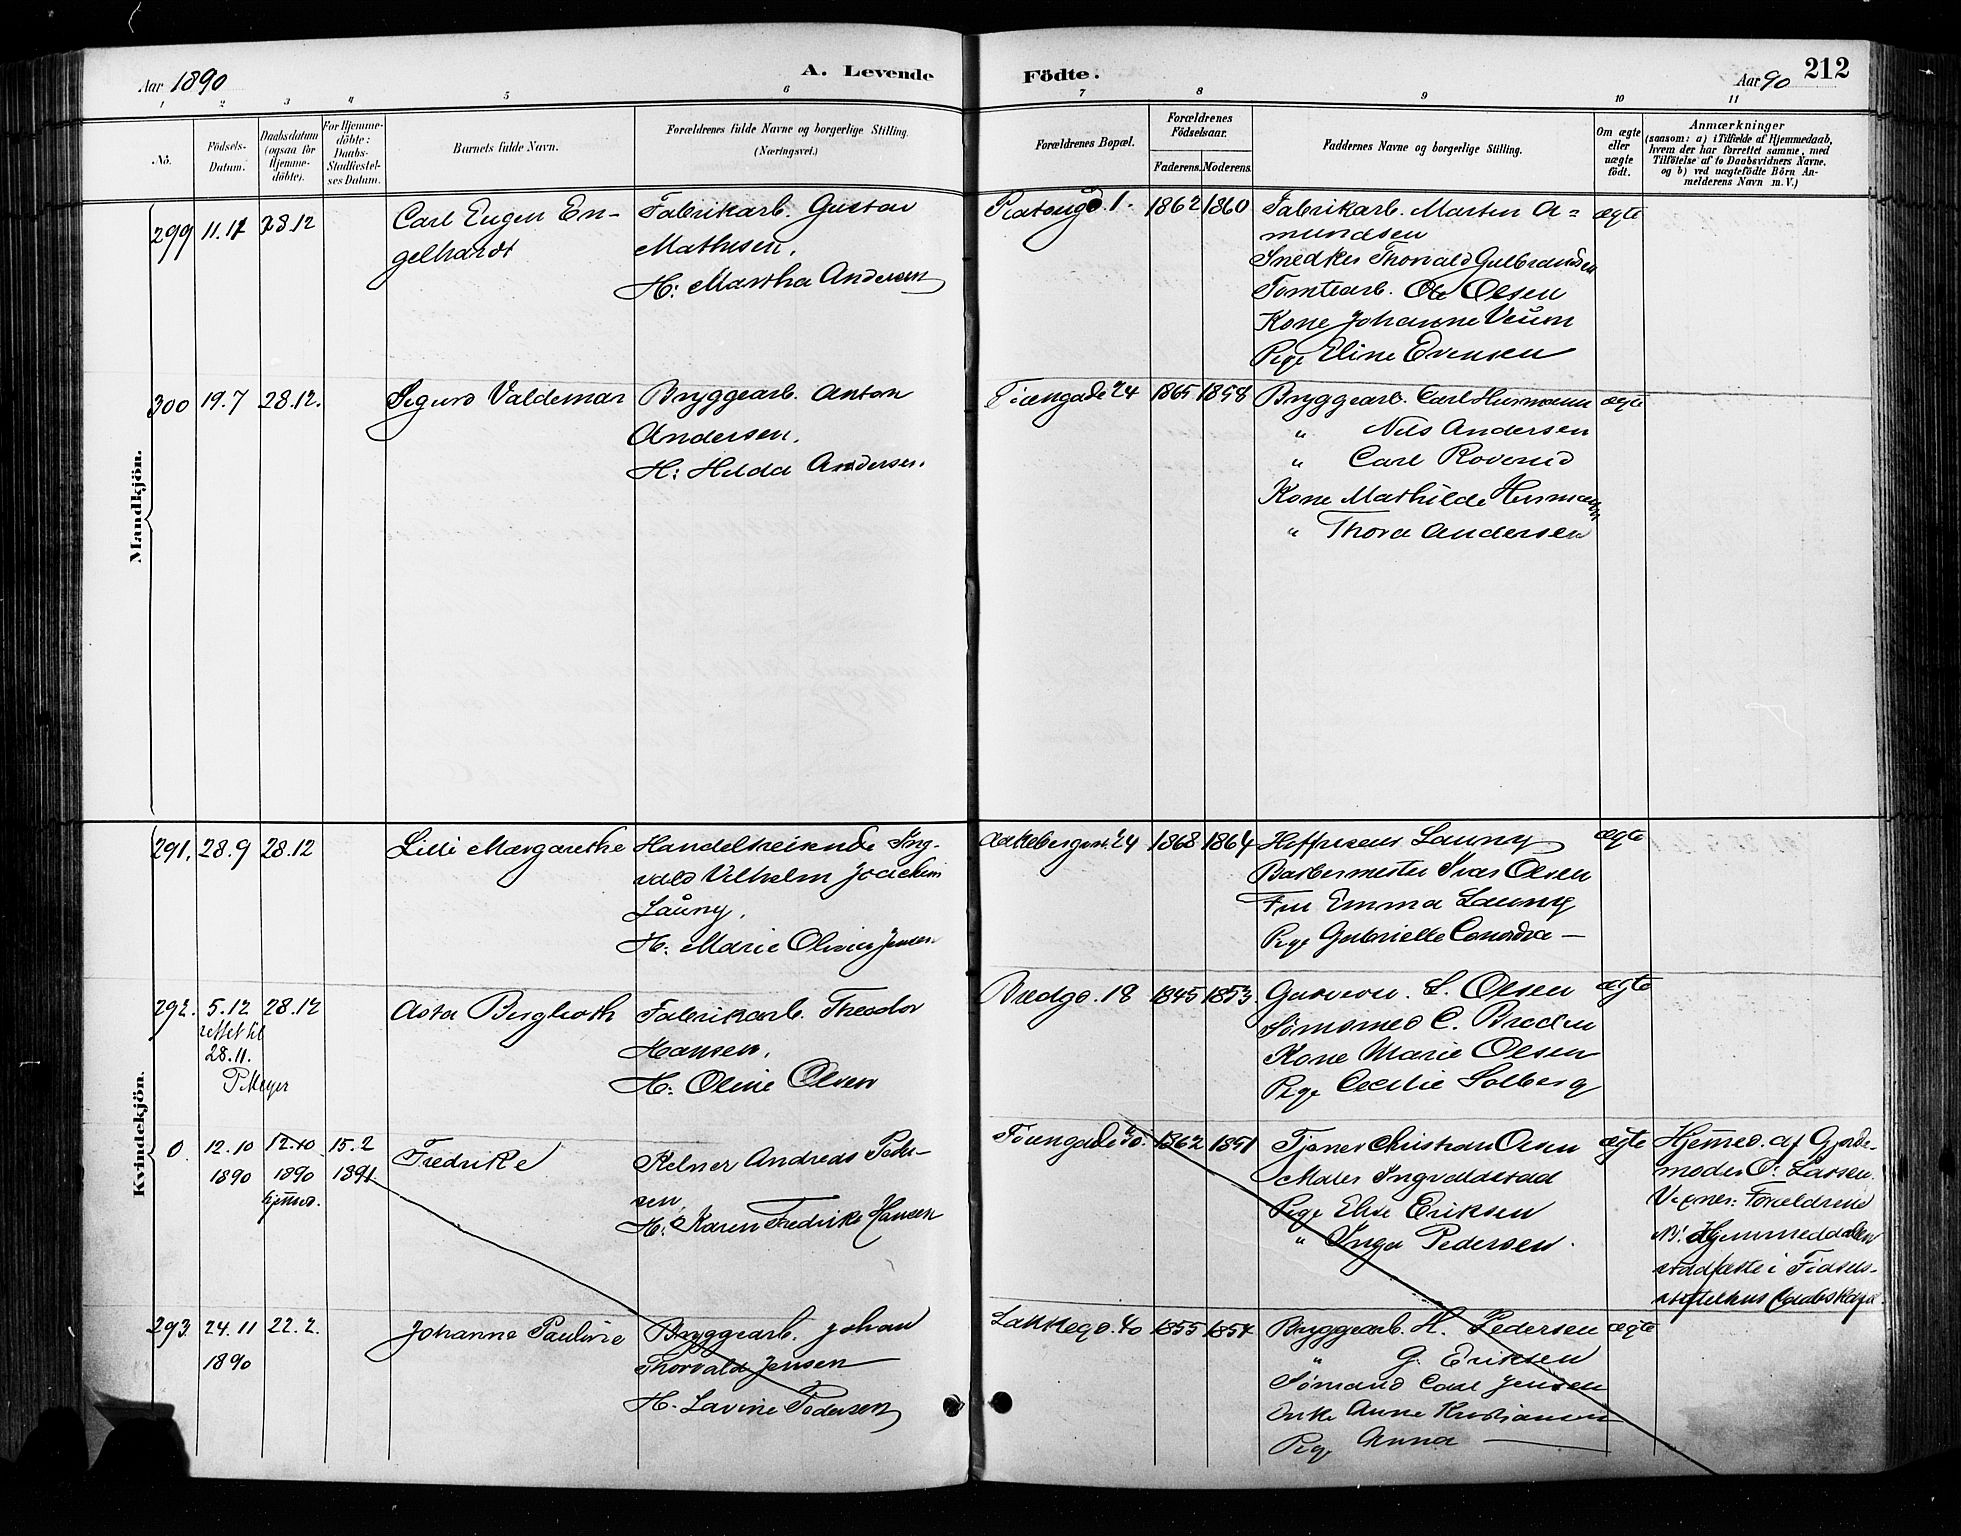 Aar 1890
A. Levende
Födte.
Aar 90
212
1 2 3 4 5 6 7 8 9 10 11
No.
Födsels-Datum.
Daabsdatum (ogsaa for Hjemme-döbte).
For Hjemme-döbte: Daabs-Stadfæstel-ses Datum.
Barnets fulde Navn.
Forældrenes fulde Navne og borgerlige Stilling.
(Næringsvei.)
Forældrenes Bopæl.
Forældrenes Födselsaar.
Faderens. Moderens.
Faddernes Navne og borgerlige Stilling.
Om ægte eller uægte födt.
Anmærkninger
(saasom: a) i Tilfælde af Hjemmedaab, hvem der har forrettet samme, med Tilföielse af to Daabsvidners Navne, og b) ved uægtefödte Börn An-melderens Navn m. V.)
Mandkjön.
299 11.11 28.12
Carl Eugen En-
gelhardt
Fabrikarb. Gustav
Mathisen,
H: Martha Andersen
1. 1862 1860
Fabrikarb. Martin A=
mundsen
Snedker Thorvald Gulbrandsen
Tomtearb. Ole Olsen
Kone Johanne Veum
Pige Eline Evensen
ægte
300 19.7 28.12.
Sigurd Valdemar
Bryggearb. Anton
Andersen,
H: Hilda Andersen.
Tøiengade 24 1865 1858
Bryggearb. Carl Hermann
" Nils Andersen
" Carl Roverud
Kone Mathilde Hermann
" Thora Andersen
ægte
Kvindekjön.
291, 28.9 28.12
Lilli Margarethe
Handelsreisende Ing-
vald Vilhelm Joachim
Launy,
H: Marie Olivia Jensen
Aakebergv. 24 1868 1864
Launy
Barbermester Ivar Olsen
Fru Emma Launy
Pige Gabrielle
ægte
292. 5.12 28.12
rettet til
28.11.
P. Meyer
Asta Berglioth
Fabrikarb. Theodor
Hansen,
H: Oline Olsen
Bredgd. 18 1845 1853
L. Olsen
C. Bredin
Kone Marie Olsen
Pige Cecilie Solberg
ægte
0. 12.10 12.10 15.2
1890 1890 1891
hjemmed.
Fredrike
Kelner Andreas Peder-
sen,
H: Karen Fredrike Hansen
Tøiengade 40. 1862 1851
Tjener Christian Olsen
Maler
Pige Elise Eriksen
" Inga Pedersen.
ægte
Hjemmed. af Gjorde-
moder O. Larsen.
Vidner: Forældrene
N: Hjemmedaaben
stadfæste i Fødsels-
stiftelsens Daabskapel.
293 24.11 22.2.
1890
Johanne Pauline
Bryggearb. Johan
Thorvald Jensen
H. Lavine Pedersen
Lakkegd. 40 1855 1854
Bryggearb. H. Pedersen
" G. Eriksen
Sømand Carl Jensen
Enke Anne Kristiansen
Pige Anna —
ægte